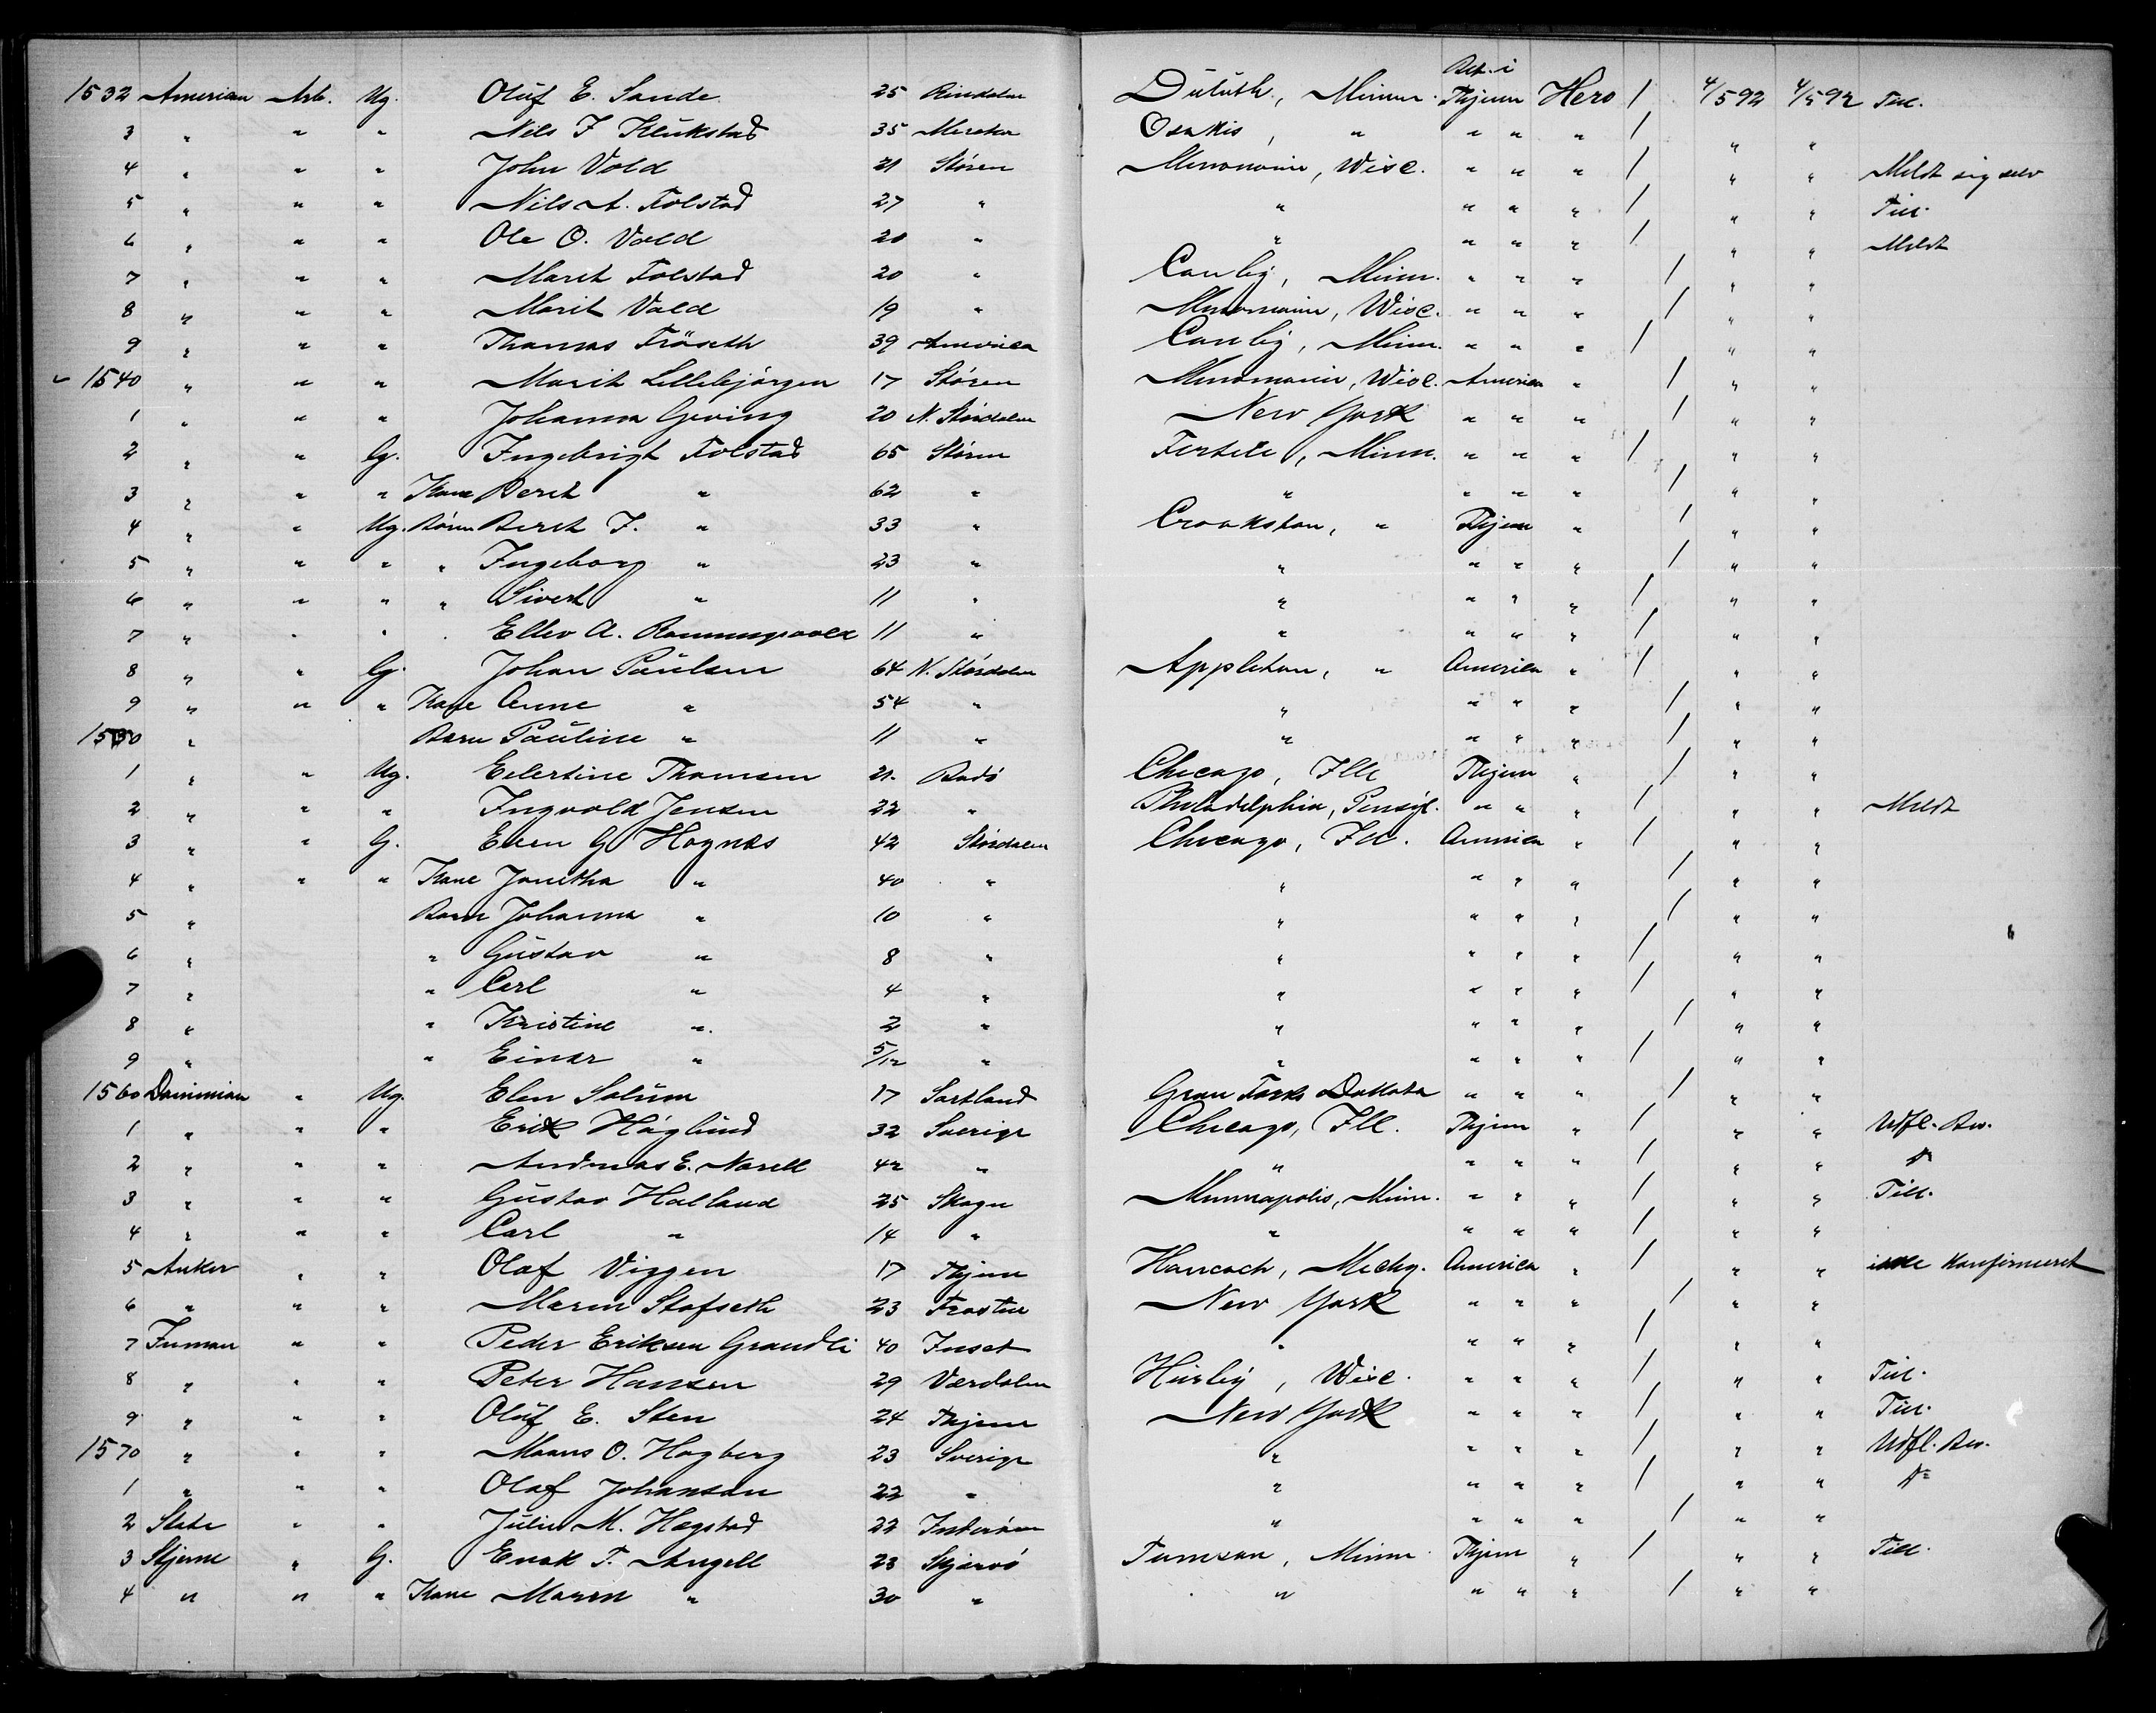 Bet. i
1532 American Arb. Ug. Oluf E. Sande 25 Rindalen Duluth, Minn. Thjem Hero / 4/5 92 4/5 92 Till.
3 " " " Nils J Klukstad 35 Meraker Osakis, " " " " / " "
4 " " " John Vold 21 Stören Menomonie, Wisc. " " " / " " Meldt sig selv
5 " " " Nils A. Folstad 27 " " " " " / " " Till.
6 " " " Ole O. Vold 20 " " " " " / " " Meldt
7 " " " Marit Folstad 20 " Canby, Minn. " " " / " "
8 " " " Marit Vold 19 " Menomonie, Wisc. " " " / " "
9 " " " Thomas Fröseth 39 America Canby, Minn. " " " / " "
1540 " " " Marit Lillebjörgen 17 Stören Menomonie, Wisc. America " / " "
1 " " " Johanna Geving 20 N. Stördalen New York " " " / " "
2 " " G. Ingebrigt Folstad 65 Stören Fertile, Minn. " " " / " "
3 " " " Kone Berit " 62 " " " " " / " "
4 " " Ug. Börn Berit I. " 33 " Crookston, " Thjem " / " "
5 " " " " Ingeborg " 23 " " " " " / " "
6 " " " " Sivert " 11 " " " " " / " "
7 " " " " Ellev A. 11 " " " " " / " "
8 " " G. Johan Paulsen 64 N. Stördalen Appleton, " America " / " "
9 " " " Kone Anne " 54 " " " " " / " "
1550 " Barn Pauline " 11 " " " " " / " "
1 " " Ug. Eilertine Thomsen 21. Bodö Chicago, Ill Thjem " / " "
2 " " " Ingvold Jensen 22 " Philadelphia, Pensyl. " " " / " " Meldt
3 " " G. Even G Hognes 42 Stördalen Chicago, Ill. America " / " "
4 " " " Kone Jonetha " 40 " " " " " / " "
5 " Barn Johanna " 10 " " " " " / " "
6 " " Gustav " 8 " " " " " / " "
7 " " Carl " 4 " " " " " / " "
8 " " Kristine " 2 " " " " " / " "
9 " " Einar " 5/12 " " " " " / " "
1560 Dominian " Ug. Elen Solum 17 Sortland Gran Forks Dakota " " " / " "
1 " " " Erik Höglund 32 Sverige Chicago, Ill. Thjem " / " " Udfl. Bev.
2 " " " Andreas E. Norell 42 " " " " " / " "
3 " " " Gustav Halland 25 Skogn Minneapolis, Minn. " " " / " " Till.
4 " " " Carl " 14 " " " " " / " "
5 Anker " " Olaf Viggen 17 Thjem Hancoch, Mechg. America " / " " ikke Konfirmeret
6 " " " Maren Stafseth 23 Frosten New York " " " / " "
7 Inman " " Peder Eriksen Grandli 40 Inset " " " " / " "
8 " " " Peter Hansen 29 Værdalen Hurley, Wisc. " " " / " " Till.
9 " " " Oluf E. Sten 24 Thjem New York " " " / " " Till.
1570 " " " Maans O. Hogberg 23 Sverige " " " " / " " Udfl. Bev.
1 " " " Olof Johanson 22 " " " " " / " "
2 State " " Julie M. Hegstad 22 Inderöen " " " " / " "
3 Stjerne " G. Enok T. Angell 28 Skjervö Tumson, Minn. Thjem " / " " Till.
4 " " " Kone Maren " 30 " " " " " / " "